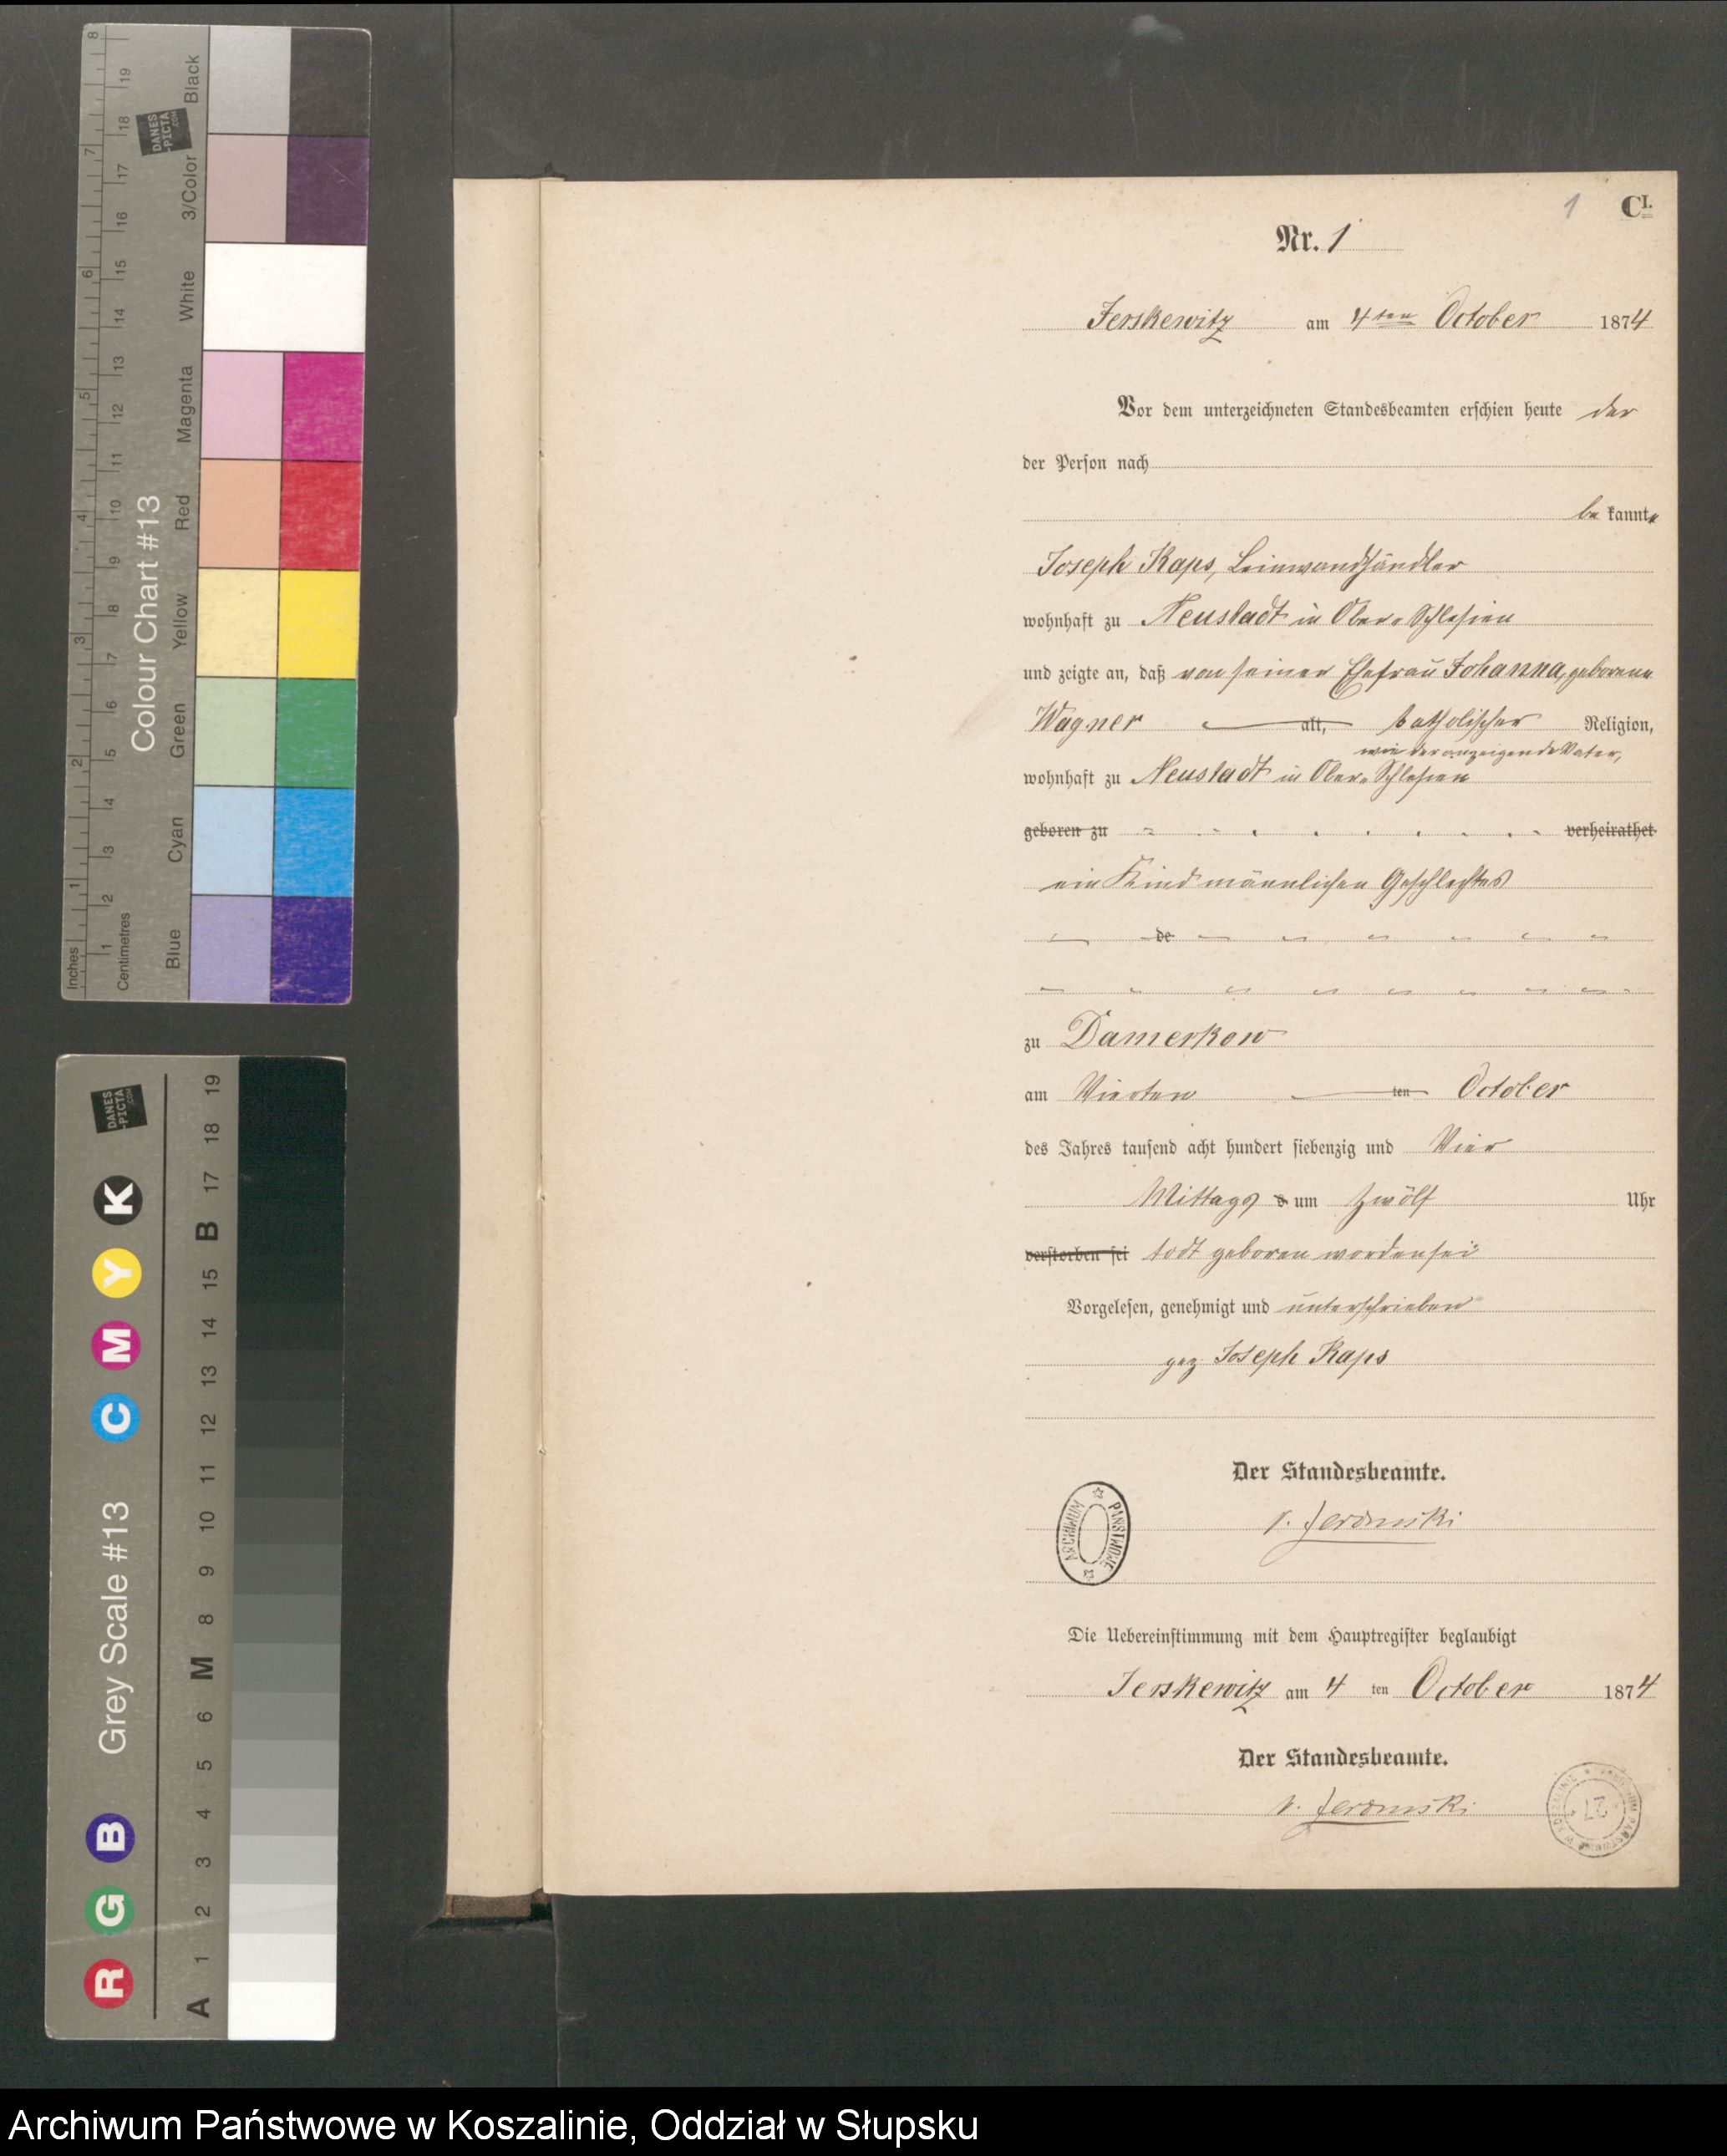 8
7
6
5
4
3
2
1
Inches
19
18
17
16
15
14
13
12
11
10
9
8
7
6
5
4
3
2
1
Centimetres
DANES
-PICTA
.COM
Colour Chart #13
Black
3/Color
White
Magenta
Red
Yellow
Green
Cyan
Blue
DANES
-PICTA
.COM
Grey Scale #13
R G B C M Y K
A 1 2 3 4 5 6 M 8 9 10 11 12 13 14 15 B 17 18 19
1 C I.
Nr. 1
Jerskewitz am 4ten October 1874
Vor dem unterzeichneten Standesbeamten erschien heute der
der Person nach
be kannte
Joseph Kaps, Leinwandhändler
wohnhaft zu Neustadt in Ober-Schlesien
und zeigte an, daß von seiner Ehefrau Johanna, geborene
Wagner alt, katholischer Religion,
wie der anzeigende Vater,
wohnhaft zu Neustadt in Ober-Schlesien
geboren zu verheirathet
ein Kind männlichen Geschlechtes
de
zu Damerkow
am Vierten ten October
des Jahres tausend acht hundert siebenzig und Vier
Mittags s um zwölf Uhr
verstorben sei todt geboren worden sei
Vorgelesen, genehmigt und unterschrieben
gez Joseph Kaps
Der Standesbeamte.
ARCHIWUM PAŃSTWOWE
Die Uebereinstimmung mit dem Hauptregister beglaubigt
Jerskewitz am 4 ten October 1874
Der Standesbeamte.
Archiwum Państwowe w Koszalinie, Oddział w Słupsku